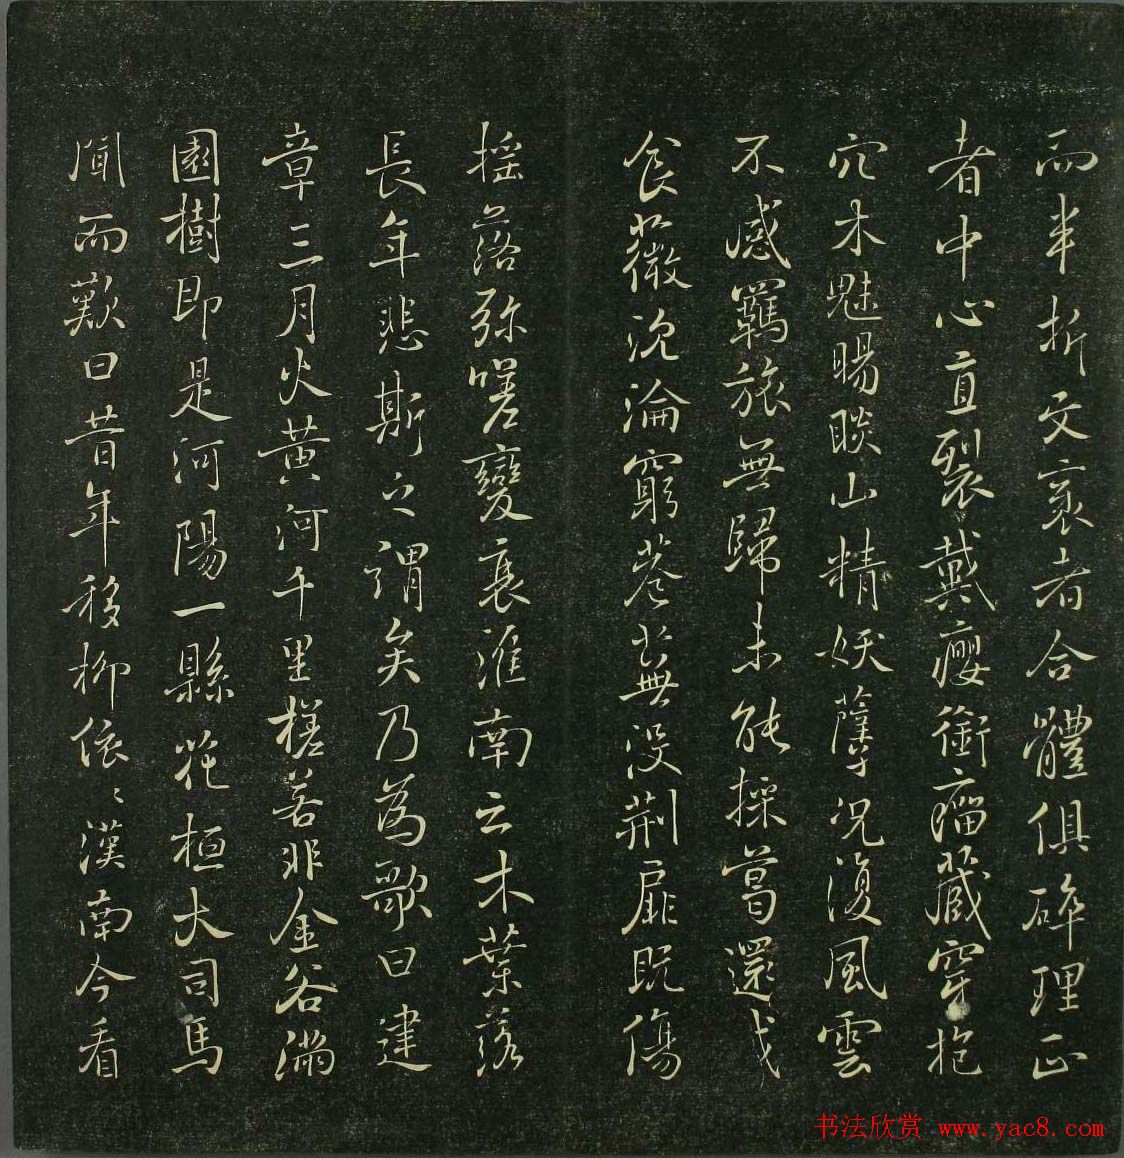 而半折文袤者合體俱碎理正
者中心直裂戴癭銜瘤藏穿抱
穴木魅睗睒山精妖孽況復風雲
不感羈旅無歸未能採葛還成
食薇沈淪窮巷蕪没荆扉既傷
搖落弥嗟變衰淮南云木葉落
長年悲斯之謂矣乃為歌曰建
章三月火黃河千里槎若非金谷滿
園樹即是河陽一縣花桓大司馬
聞而歎曰昔年移柳依〻漢南今看
书法欣赏 www.yac8.com